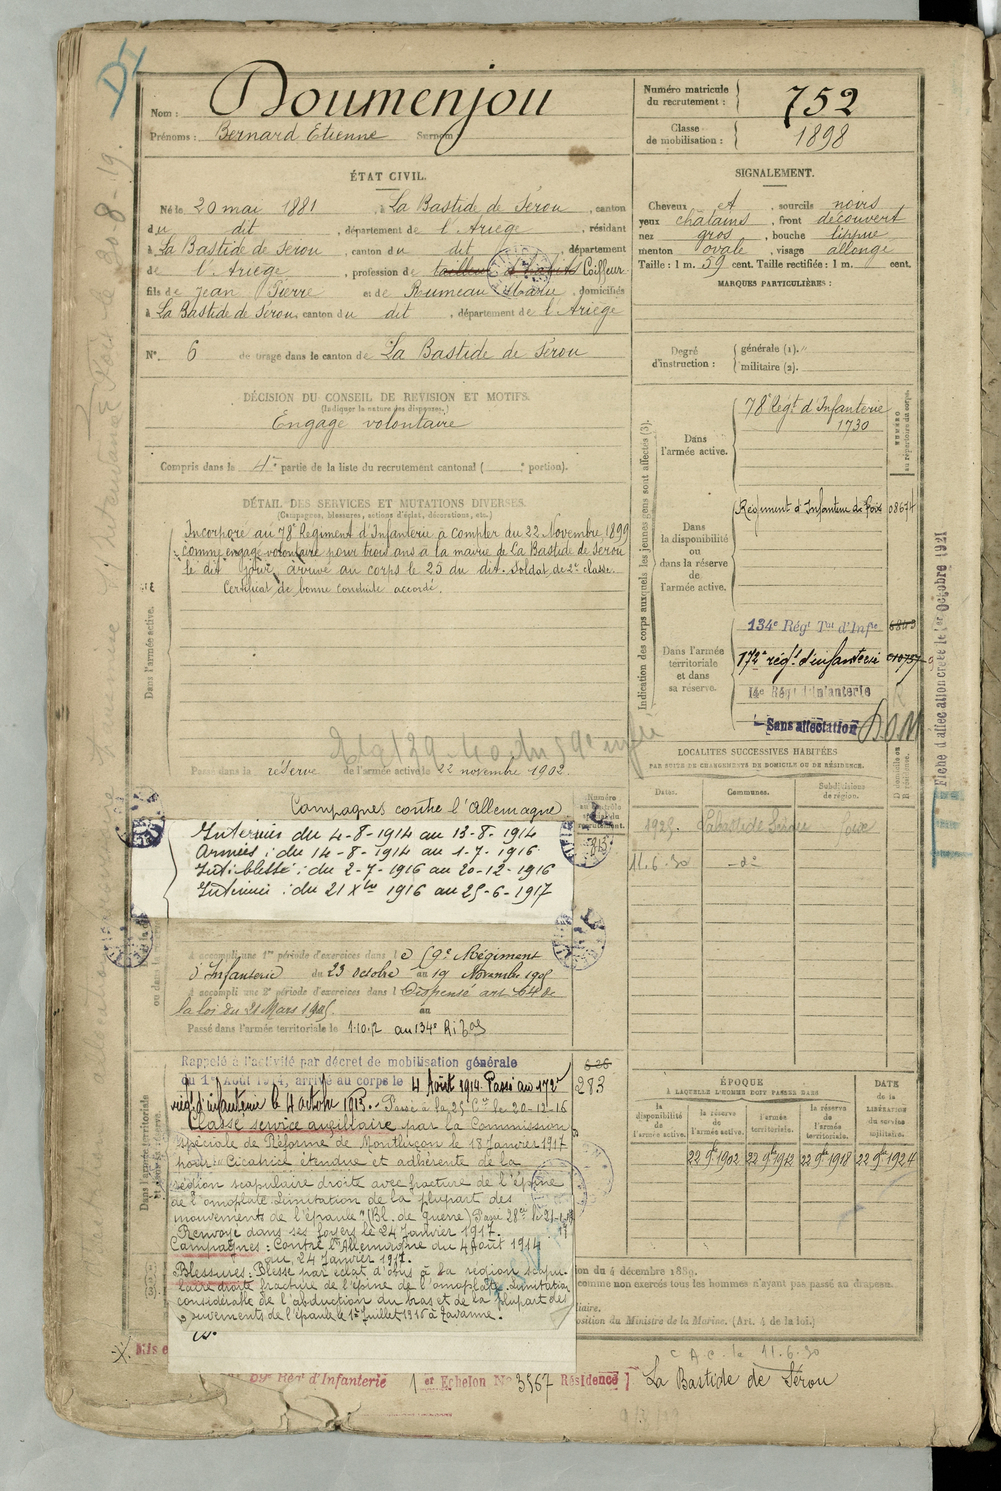 Nom : Doumenjou
Prénoms : Bernard Etienne Surnom :
Numéro matricule du recrutement : 752
Classe de mobilisation : 1898
ÉTAT CIVIL.
Né le 20 mai 1881, à La Bastide de Sérou, canton
du dit, département de l'Ariège, résidant
à La Bastide de Serou, canton du dit, département
de l'Ariège, profession de tailleur d'habits Coiffeur
fils de Jean Pierre et de Rumeau Marie, domiciliés
à La Bastide de Sérou, canton du dit, département de l'Ariège
N° 6 de tirage dans le canton de La Bastide de Sérou
SIGNALEMENT.
Cheveux et, sourcils noirs
yeux chatains, front découvert
nez gros, bouche lippue
menton ovale, visage allongé
Taille : 1 m. 59 cent. Taille rectifiée : 1 m. cent.
MARQUES PARTICULIÈRES :
Degré d'instruction : générale (1). militaire (2).
DÉCISION DU CONSEIL DE REVISION ET MOTIFS.
(Indiquer la nature des dispenses.)
Engagé volontaire
Compris dans la 4e partie de la liste du recrutement cantonal ( portion).
DÉTAIL DES SERVICES ET MUTATIONS DIVERSES.
(Campagnes, blessures, actions d'éclat, décorations, etc.)
Incorporé au 78e Régiment d'Infanterie à compter du 22 Novembre 1899
comme engagé volontaire pour trois ans à la mairie de La Bastide de Serou
le dit jour, arrivé au corps le 25 du dit. Soldat de 2e classe.
Certificat de bonne conduite accordé.
Dans l'armée active.
Passé dans la réserve de l'armée active le 22 novembre 1902.
Campagnes contre l'Allemagne
Intérieur du 4-8-1914 au 13-8-1914
Armées : du 14-8-1914 au 1-7-1916
Int. blessé : du 2-7-1916 au 20-12-1916
Intérieur : du 21 Xbre 1916 au 25-6-1917
A accompli une 1re période d'exercices dans le 59e Régiment
d'Infanterie du 23 octobre au 19 Novembre 1905
A accompli une 2e période d'exercices dans l Dispensé art 64 de
la loi du 21 Mars 1905. au
Passé dans l'armée territoriale le 1.10.12 au 134e
Rappelé à l'activité par décret de mobilisation générale
du 1er Août 1914, arrivé au corps le 4 Août 1914. Passé au 172e
rég. d'infanterie le 4 octobre 1915. Passé à la 25e Cie le 20-12-16
Classé service auxiliaire par la Commission
Spéciale de Réforme de Montluçon le 18 Janvier 1917
pour : "Cicatrice étendue et adhérente de la
région scapulaire droite avec fracture de l'épine
de l'omoplate. Limitation de la plupart des
mouvements de l'épaule" (Bl. de guerre)
Renvoyé dans ses foyers le 24 Janvier 1917.
Campagnes : Contre l'Allemagne du 4 Août 1914
au 24 Janvier 1917.
Blessures : Blessé par éclat d'obus à la région scapu-
laire droite fracture de l'épine de l'omoplate. Limitation
considérable de l'abduction du bras et de la plupart des
mouvements de l'épaule le 1er Juillet 1916 à
283
Indication des corps auxquels les jeunes gens sont affectés (3).
Dans l'armée active. 78e Régt d'Infanterie
1730
Dans la disponibilité ou dans la réserve de l'armée active. Régiment d'Infanterie de Foix 08674
Dans l'armée territoriale et dans sa réserve. 134e Régt Tal d'Infie
172e rég.t d'infanterie
14e Régt d'Infanterie
Sans affectation
NUMÉRO au répertoire du corps.
Fiche d'affectation créée le 1er Octobre 1921
LOCALITÉS SUCCESSIVES HABITÉES
PAR SUITE DE CHANGEMENTS DE DOMICILE OU DE RÉSIDENCE.
Dates. Communes. Subdivisions de région. D. domicile ou R. résidence.
1925. Labastide Sérou Foix
11.6.30 — do
ÉPOQUE
À LAQUELLE L'HOMME DOIT PASSER DANS
DATE DE LA LIBÉRATION DU SERVICE MILITAIRE.
la disponibilité de l'armée active. la réserve de l'armée active. l'armée territoriale. la réserve de l'armée territoriale.
22 9bre 1902 22 9bre 1912 22 9bre 1918 22 9bre 1924
ion du 4 décembre 1889.
comme non exercés tous les hommes n'ayant pas passé au drapeau.
position du Ministre de la Marine. (Art. 4 de la loi.)
C.A.C. le 11.6.30
59e Régt d'Infanterie 1er Echelon No 3567 Résidence : La Bastide de Sérou